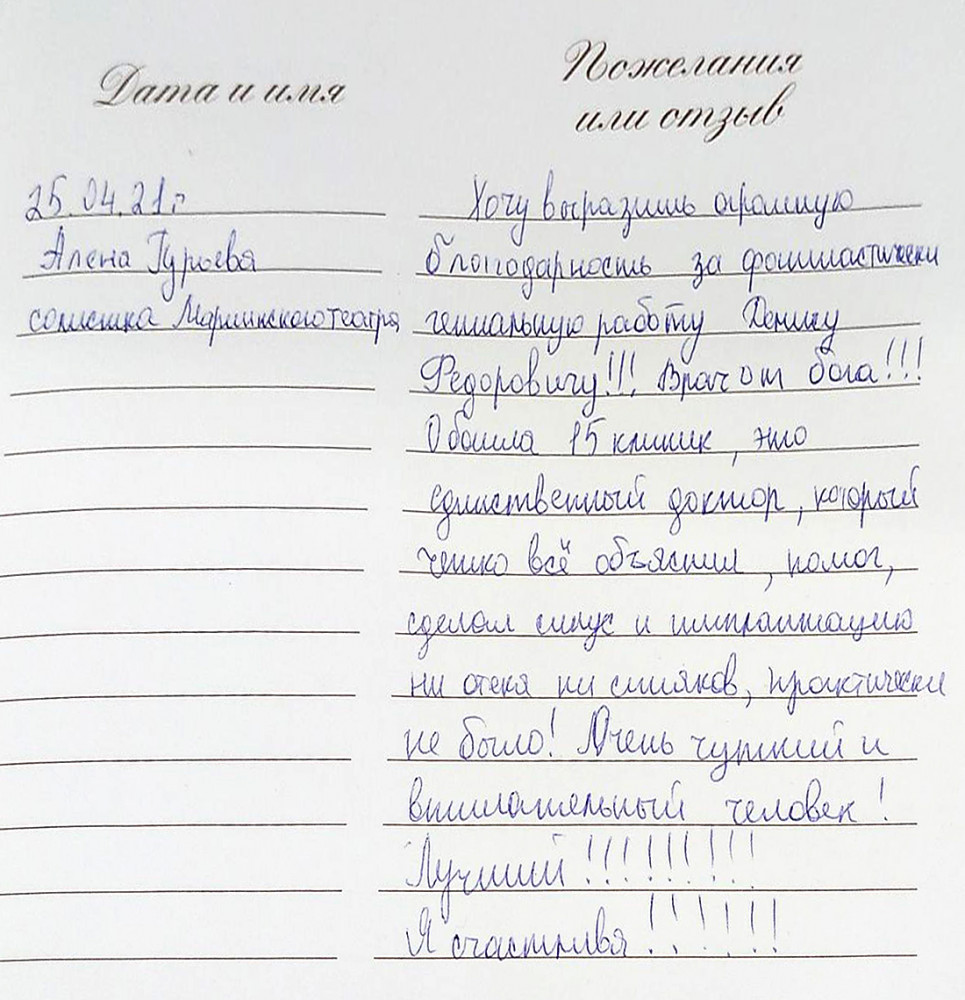 Дата и имя
Пожелания
или отзыв
25.04.21г
Алена Гурьева
солистка Мариинского театра
Хочу выразить огромную
благодарность за фантастически
гениальную работу Денису
Федоровичу!!! Врач от бога!!!
Обошла 15 клиник, это
единственный доктор, который
четко всё объяснил, помог,
сделал синус и имплантацию
ни отека ни синяков, практически
не было! Очень чуткий и
внимательный человек!
Лучший!!!!!!!!!
Я счастлива!!!!!!